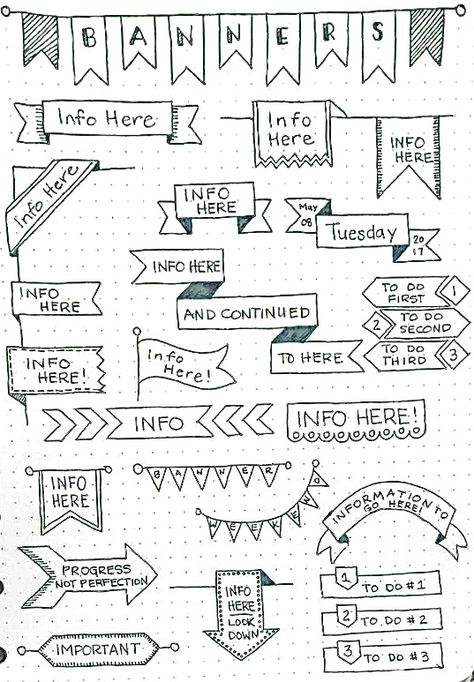 BANNERS
Info Here
Info
Here
INFO
HERE
Info Here
INFO
HERE
May
08
Tuesday
20
17
INFO HERE
AND CONTINUED
TO HERE
TO DO
FIRST
1
2
TO DO
SECOND
TO DO
THIRD
3
INFO
HERE
INFO
HERE!
Info
Here!
INFO
INFO HERE!
INFO
HERE
BANNER
WEEKEND
INFORMATION TO
GO HERE!
PROGRESS
NOT PERFECTION
INFO
HERE
LOCK
DOWN
1
TO DO #1
2
TO DO #2
3
TO DO #3
IMPORTANT